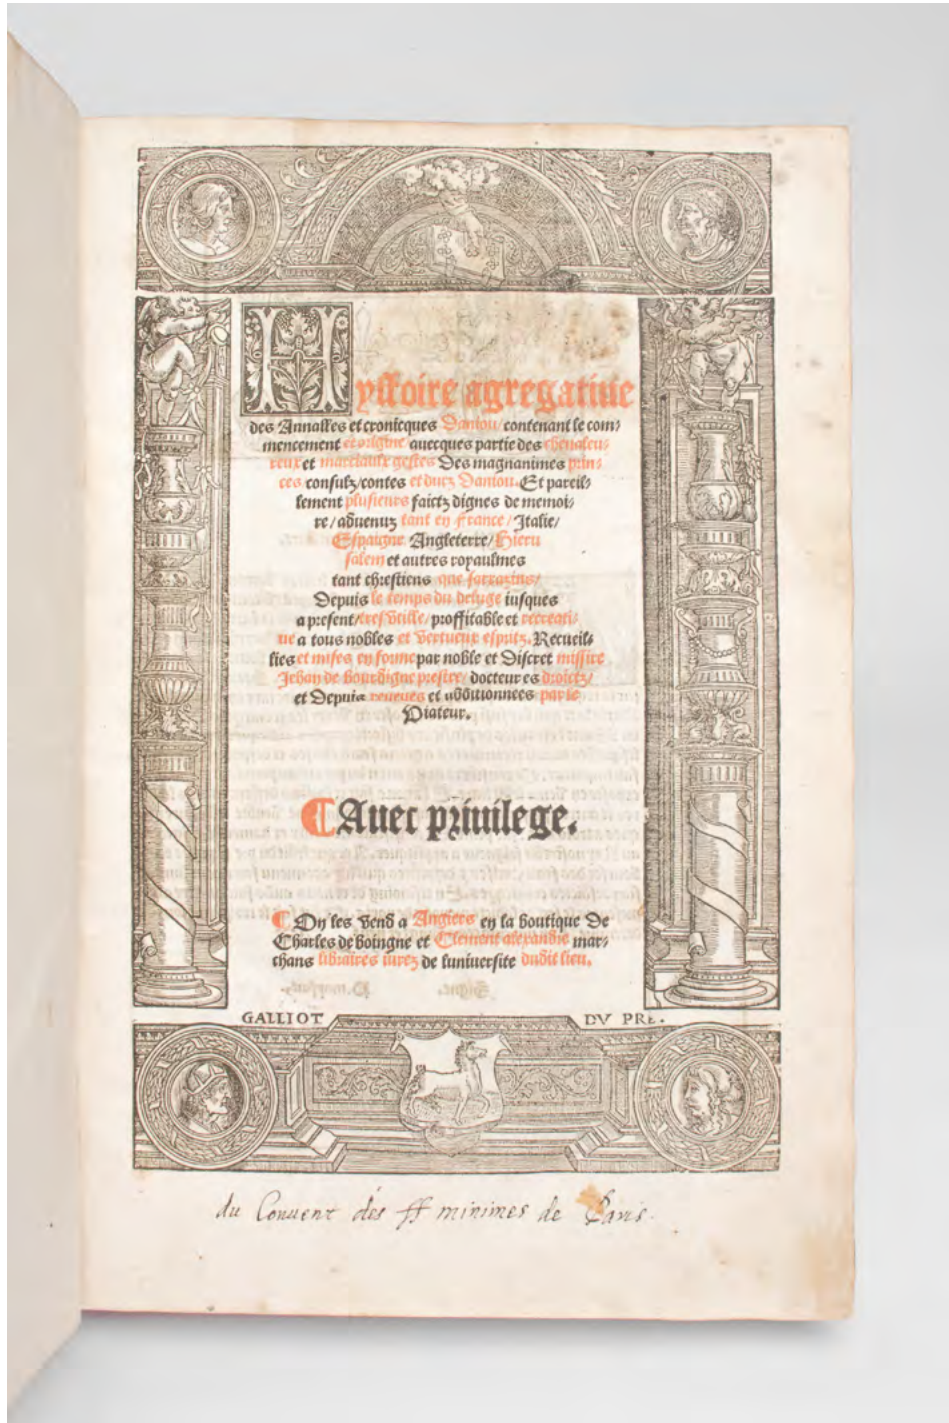 Hystoire agregatiue
des Annalles et cronicques Daniou/contenant le com⸗
mencement et origine auecques partie des cheualeu⸗
reux et marciaulx gestes Des magnanimes prin⸗
ces consulz/contes et ducz Daniou. Et pareil⸗
lement plusieurs faictz dignes de memoi⸗
re/aduenuz tant en france/Italie/
Espaigne Angleterre/Hieru
salem et autres royaulmes
tant chrestiens que sarrazins/
Depuis le temps du deluge iusques
a present/tresvtille/proffitable et recreati⸗
ue a tous nobles et vertueux espritz. Recueil⸗
lies et mises en forme par noble et Discret missire
Jehan de Bourdigne prestre/docteur es droictz/
et Depuis reueues et additionnees par le
Viateur.
¶Auec priuilege.
¶On les vend a Angiers en la boutique De
Charles de boingne et Clement alexandre mar⸗
chans libraires iurez de luniuersite dudit lieu.
GALLIOT DV PRE.
du Conuent des ff minimes de Paris.